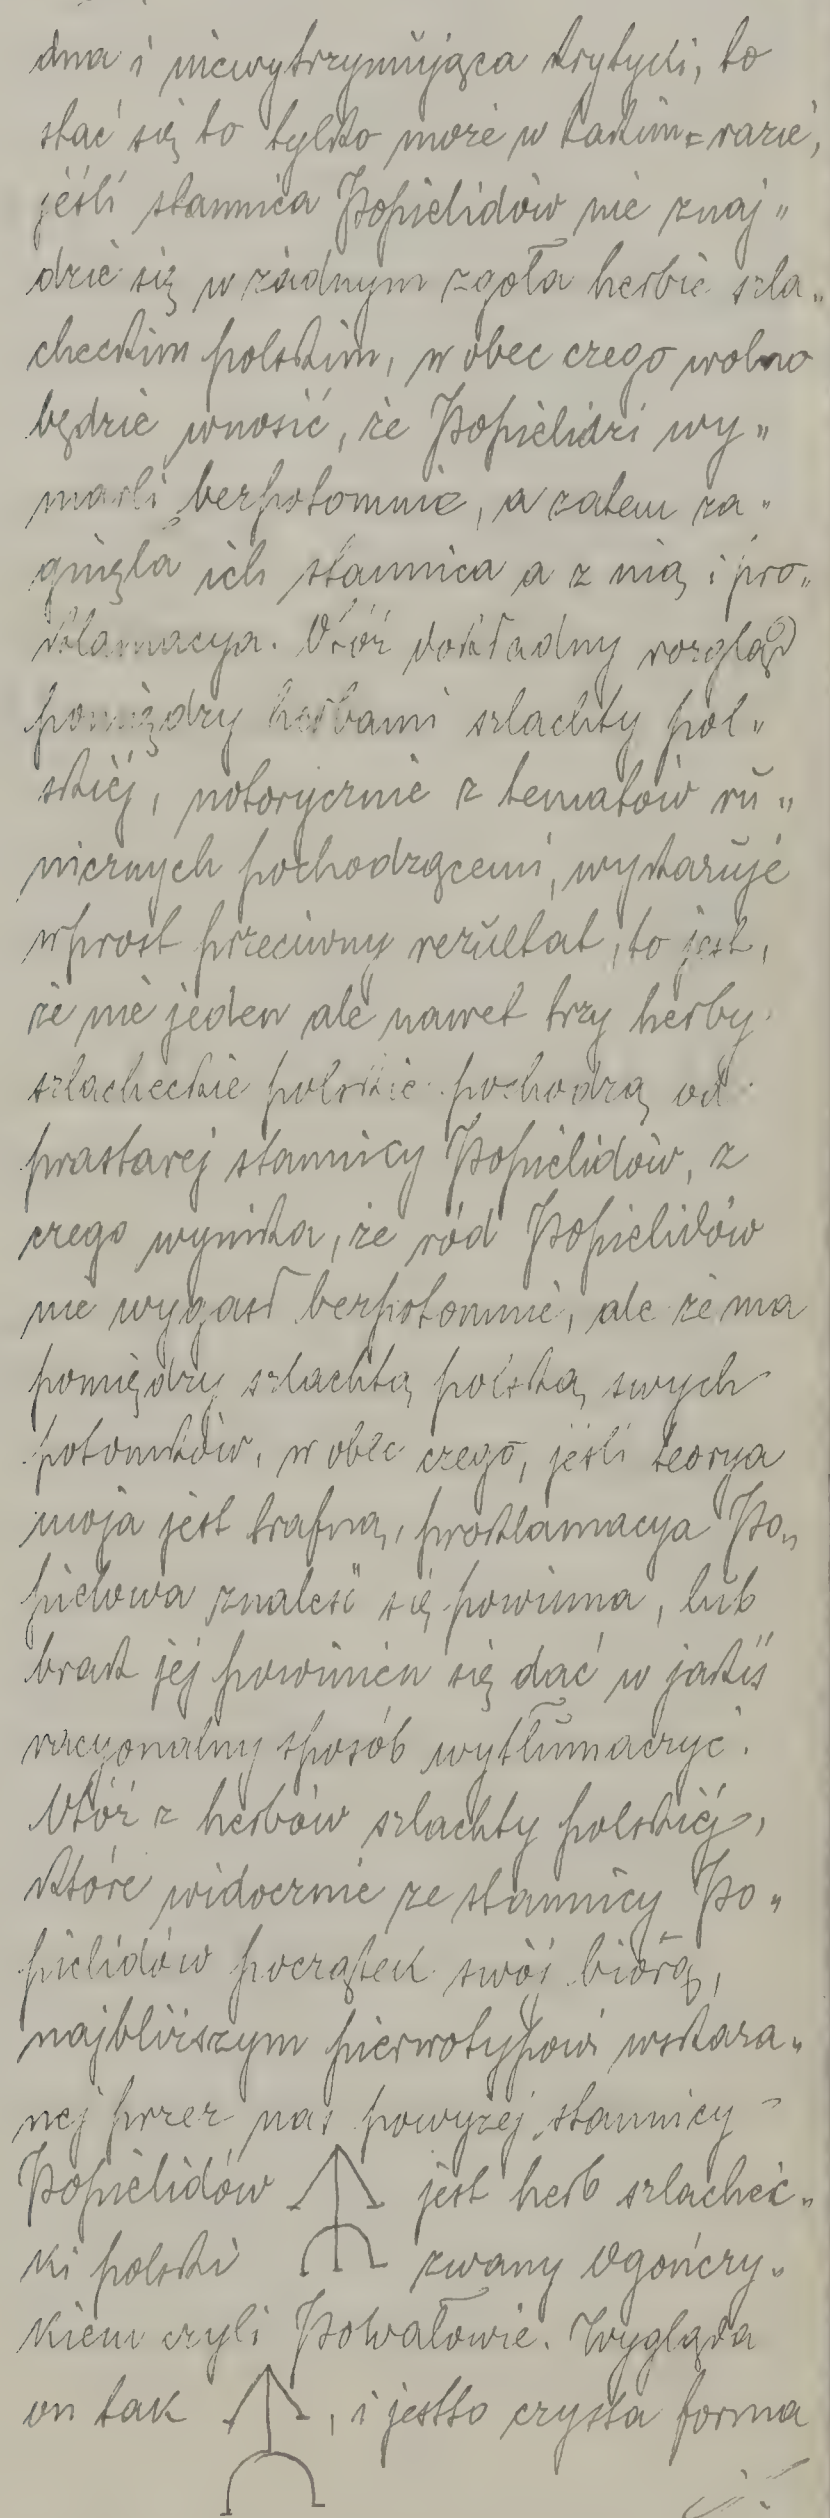 dna i niewytrzymująca krytyki, to
stać się to tylko może w takim=razie,
jeśli stannica Popielidów nie znaj„
dzie się w żadnym zgoła herbie szla„
checkim polskim, w obec czego wolno
będzie wnosić, że Popielidzi wy„
marli bezpotomnie, a zatem za„
ginęła ich stannica a z nią i pro„
klamacya. Otóż dokładny rozgląd
pomiędzy herbami szlachty pol„
skiéj, notorycznie z tematów ru„
nicznych pochodzącemi, wykazuje
wprost przeciwny rezultat, to jest,
że nie jeden ale nawet trzy herby
szlacheckie polskie pochodzą od
prastarej stannicy Popielidów, z
czego wynika, że ród Popielidów
nie wygasł bezpotomnie, ale że ma
pomiędzy szlachtą polską swych
potomków, w obec czego, jeśli teorya
moja jest trafną, proklamacya Po„
pielowa znaleść się powinna, lub
brak jej powinien się dać w jakiś
racyonalny sposób wytłumaczyć.
Otóż z herbów szlachty polskiéj,
które widocznie ze stannicy Po„
pielidów początek swój biorą,
najbliższym pierwotypowi wskaza„
nej przez nas powyżej stannicy
Popielidów jest herb szlachec„
ki polski zwany Ogończy„
kiem czyli Powałowie. Wygląda
on tak , i jestto czysta forma